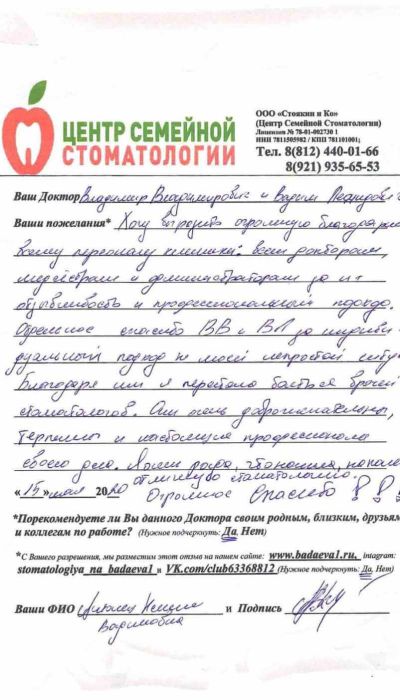 ЦЕНТР СЕМЕЙНОЙ
СТОМАТОЛОГИИ
ООО «Стоякин и Ко»
(Центр Семейной Стоматологии)
Лицензия № 78-01-002730 1
ИНН 7811505982 / КПП 781101001;
Тел. 8(812) 440-01-66
8(921) 935-65-53
Ваш Доктор Владимир Владимирович и Вадим Леонидович
Ваши пожелания* Хочу выразить огромную благодарно
всему персоналу клиники: всем докторам,
медсёстрам и администраторам за их
отзывчивость и профессиональный подход.
Отдельное спасибо ВВ и ВЛ за индиви
дуальный подход к моей непростой ситу
Благодаря им я перестала бояться врачей
стоматологов. Они очень доброжелательны,
терпеливы и настоящие профессионалы
своего дела. Очень рада, что нашла, наконец
отличную стоматологию.
«15» мая 2020 Огромное Спасибо!!!
*Порекомендуете ли Вы данного Доктора своим родным, близким, друзьям
и коллегам по работе? (Нужное подчеркнуть: Да, Нет)
*С Вашего разрешения, мы разместим этот отзыв на нашем сайте: www.badaeva1.ru, intagram:
stomatologiya_na_badaeva1 и VK.com/club63368812 (Нужное подчеркнуть: Да, Нет)
Ваши ФИО и Подпись
Вадимовна